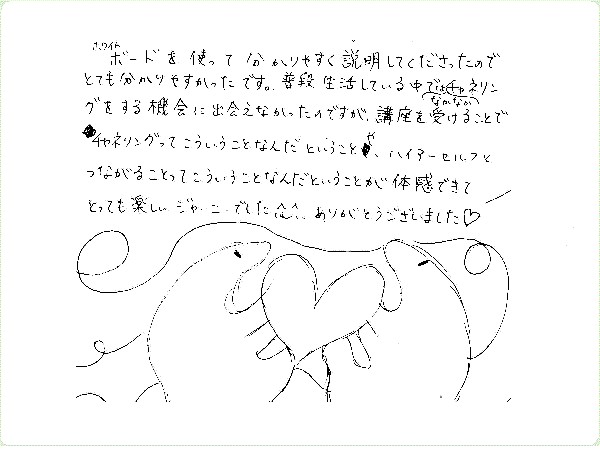 ホワイト
ボードを使って分かりやすく説明してくださったので
とても分かりやすかったです。普段生活している中ではチャネリン
なかなか
グをする機会に出会えなかったのですが、講座を受けることで
チャネリングってこういうことなんだということや、ハイアーセルフと
つながることってこういうことなんだということが体感できて
とっても楽しいジャーニーでした^^。ありがとうございました♡